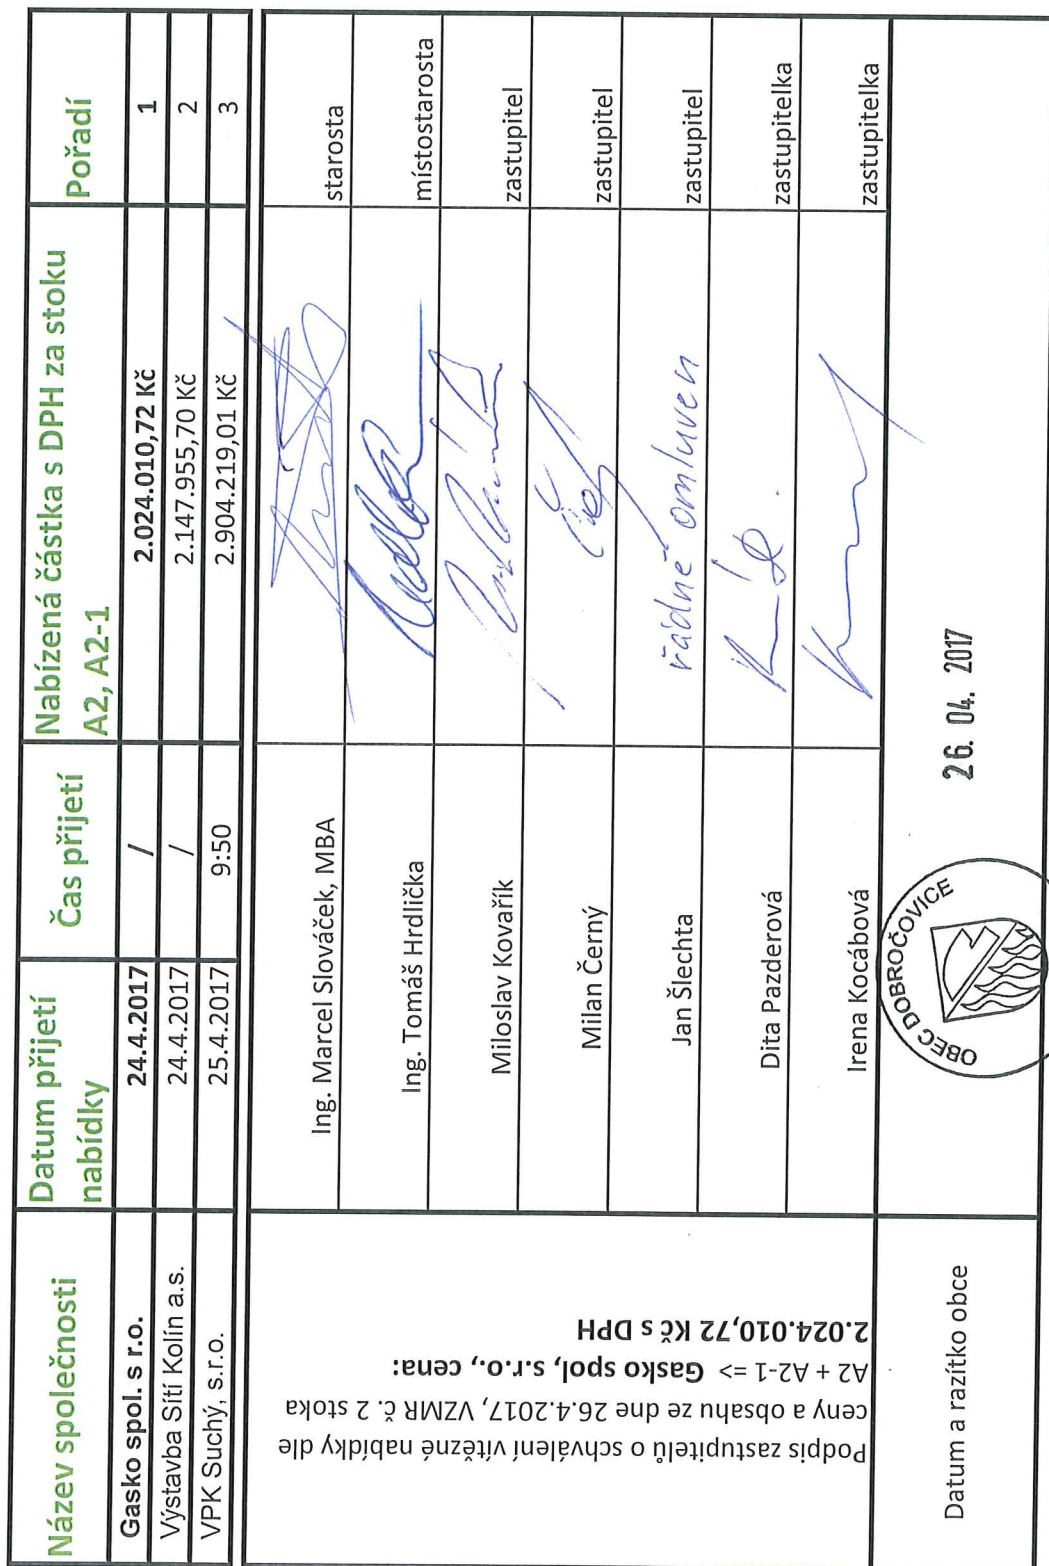 Název společnosti Datum přijetí nabídky Čas přijetí Nabízená částka s DPH za stoku A2, A2-1 Pořadí
Gasko spol. s r.o. 24.4.2017 / 2.024.010,72 Kč 1
Výstavba Sítí Kolín a.s. 24.4.2017 / 2.147.955,70 Kč 2
VPK Suchý, s.r.o. 25.4.2017 9:50 2.904.219,01 Kč 3
Podpis zastupitelů o schválení vítězné nabídky dle
ceny a obsahu ze dne 26.4.2017, VZMR č 2 stoka
A2 + A2-1 => Gasko spol, s.r.o., cena:
2.024.010,72 Kč s DPH
Ing. Marcel Slováček, MBA starosta
Ing. Tomáš Hrdlička místostarosta
Miloslav Kovařík zastupitel
Milan Černý zastupitel
Jan Šlechta řádně omluven zastupitel
Dita Pazderová zastupitelka
Irena Kocábová zastupitelka
Datum a razítko obce
OBEC DOBROČOVICE
26. 04. 2017